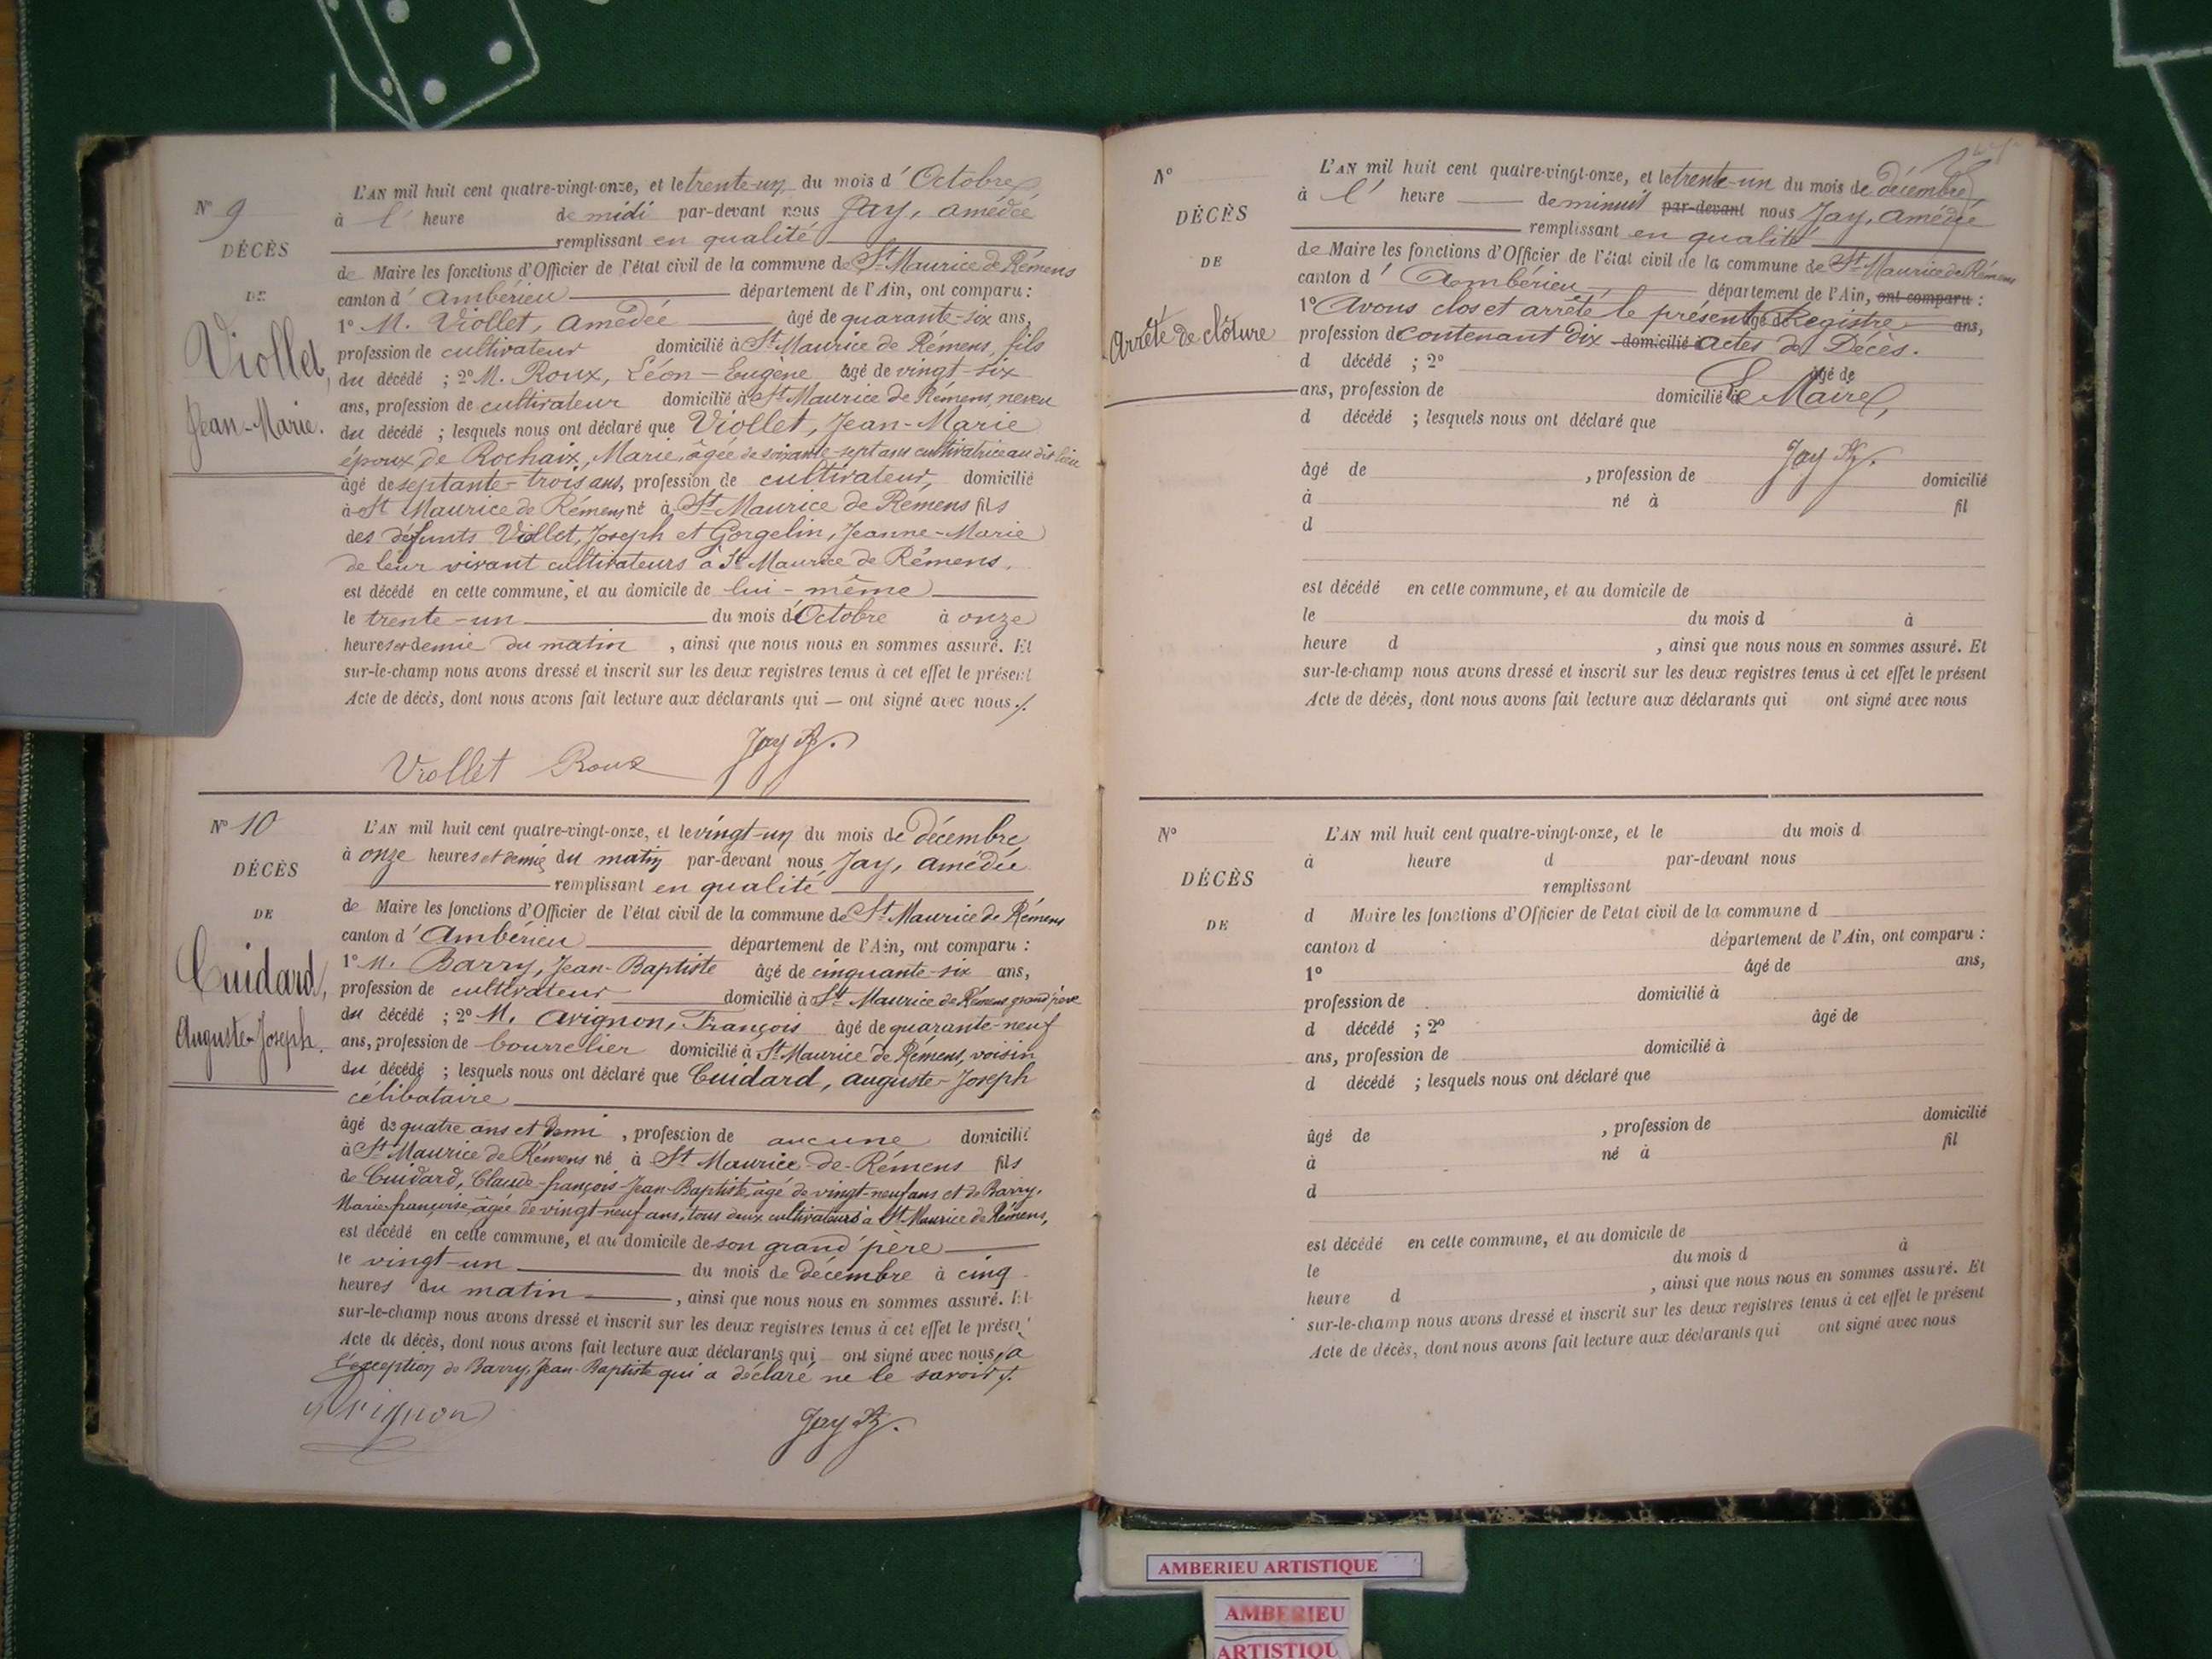 L'AN mil huit cent quatre-vingt-onze, et le trente-un du mois d'Octobre,
N° 9 à l' heure de midi par-devant nous Jay, Amédée
DÉCÈS remplissant en qualité
de Maire les fonctions d'Officier de l'état civil de la commune de St Maurice de Rémens
DE canton d'Ambérieu département de l'Ain, ont comparu :
1° M. Viollet, Amédée âgé de quarante-six ans,
Viollet, profession de cultivateur domicilié à St Maurice de Rémens, fils
du décédé ; 2° M. Roux, Léon-Eugène âgé de vingt-six
ans, profession de cultivateur domicilié à St Maurice de Rémens, neveu
Jean-Marie. du décédé ; lesquels nous ont déclaré que Viollet, Jean-Marie
époux de Rochaix, Marie, âgée de soixante-sept ans cultivatrice au dit lieu
âgé de septante-trois ans, profession de cultivateur, domicilié
à St Maurice de Rémens, né à St Maurice de Rémens fils
des défunts Viollet, Joseph et Gorgelin, Jeanne-Marie
de leur vivant cultivateurs à St Maurice de Rémens,
est décédé en cette commune, et au domicile de lui-même
le trente-un du mois d'Octobre à onze
heures et demie du matin, ainsi que nous nous en sommes assuré. Et
sur-le-champ nous avons dressé et inscrit sur les deux registres tenus à cet effet le présent
Acte de décès, dont nous avons fait lecture aux déclarants qui — ont signé avec nous./.
Viollet Roux Jay A.
N° 10 L'AN mil huit cent quatre-vingt-onze, et le vingt-un du mois de Décembre
à onze heures et demie du matin par-devant nous Jay, Amédée
DÉCÈS remplissant en qualité
DE de Maire les fonctions d'Officier de l'état civil de la commune de St Maurice de Rémens
canton d'Ambérieu département de l'Ain, ont comparu :
1° M. Barry, Jean-Baptiste âgé de cinquante-six ans,
Cuidard, profession de cultivateur domicilié à St Maurice de Rémens grand'père
du décédé ; 2° M. Avignon, François âgé de quarante-neuf
Auguste-Joseph. ans, profession de bourrelier domicilié à St Maurice de Rémens, voisin
du décédé ; lesquels nous ont déclaré que Cuidard, Auguste-Joseph
célibataire
âgé de quatre ans et demi, profession de aucune domicilié
à St Maurice de Rémens né à St Maurice-de-Rémens fils
de Cuidard, Claude-françois-Jean-Baptiste, âgé de vingt-neuf ans et de Barry,
Marie-françoise âgée de vingt-neuf ans, tous deux cultivateurs à St Maurice de Rémens,
est décédé en cette commune, et au domicile de son grand'père
le vingt-un du mois de décembre à cinq
heures du matin, ainsi que nous nous en sommes assuré. Et
sur-le-champ nous avons dressé et inscrit sur les deux registres tenus à cet effet le présent
Acte de décès, dont nous avons fait lecture aux déclarants qui ont signé avec nous, à
l'exception de Barry, Jean-Baptiste qui a déclaré ne le savoir./.
Avignon Jay A.
N° L'AN mil huit cent quatre-vingt-onze, et le trente-un du mois de décembre
à l' heure de minuit par-devant nous Jay, Amédée
DÉCÈS remplissant en qualité
de Maire les fonctions d'Officier de l'état civil de la commune de St Maurice de Rémens
DE canton d'Ambérieu, département de l'Ain, ont comparu :
1° Avons clos et arrêté le présent âgé de Registre ans,
Arrêté de clôture profession de contenant dix domicilié à actes de Décès.
d décédé ; 2° âgé de
ans, profession de domicilié à Le Maire,
d décédé ; lesquels nous ont déclaré que
Jay A.
âgé de , profession de domicilié
à né à fil
d
est décédé en cette commune, et au domicile de
le du mois d à
heure d , ainsi que nous nous en sommes assuré. Et
sur-le-champ nous avons dressé et inscrit sur les deux registres tenus à cet effet le présent
Acte de décès, dont nous avons fait lecture aux déclarants qui ont signé avec nous
N° L'AN mil huit cent quatre-vingt-onze, et le du mois d
à heure d par-devant nous
DÉCÈS remplissant
d Maire les fonctions d'Officier de l'état civil de la commune d
DE canton d département de l'Ain, ont comparu :
1° âgé de ans,
profession de domicilié à
d décédé ; 2° âgé de
ans, profession de domicilié à
d décédé ; lesquels nous ont déclaré que
âgé de , profession de domicilié
à né à fil
d
est décédé en cette commune, et au domicile de
le du mois d à
heure d , ainsi que nous nous en sommes assuré. Et
sur-le-champ nous avons dressé et inscrit sur les deux registres tenus à cet effet le présent
Acte de décès, dont nous avons fait lecture aux déclarants qui ont signé avec nous
AMBERIEU ARTISTIQUE
AMBERIEU
ARTISTIQU